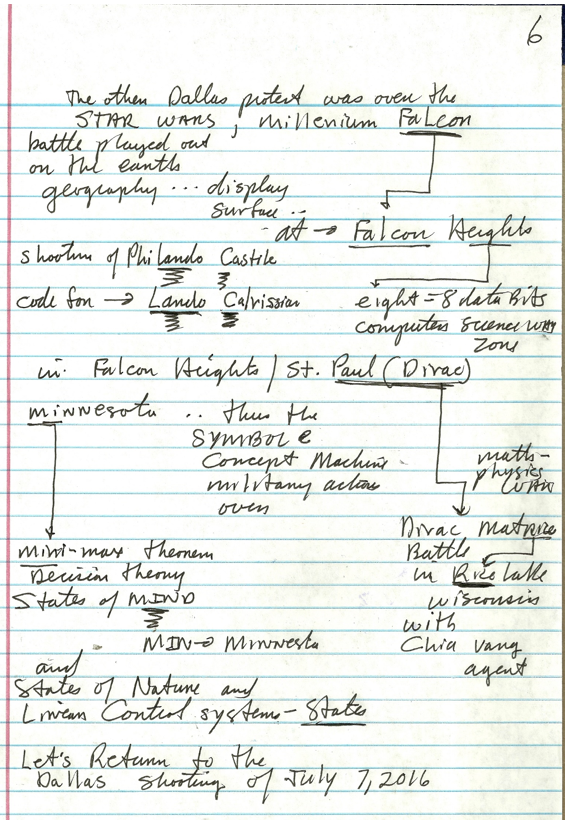 6
The other Dallas protest was over the
STAR WARS, millenium Falcon
battle played out
on the earth
geography ... display
surface ..
at → Falcon Heights
shooting of Philando Castile
code for → Lando Calrissian
eight = 8 data Bits
computer science WAR
zone
in Falcon Heights / St. Paul (Dirac)
minnesota .. thus the
SYMBOL e
Concept Machine
military action
over
math-
physics
WAR
Dirac Matrice
Battle
in Rice lake
wisconsin
with
Chia vang
agent
mini-max theorem
Decision theory
States of MIND
MIN→ Minnesta
and
States of Nature and
Linear Control systems - States
Let's Return to the
Dallas shooting of July 7, 2016